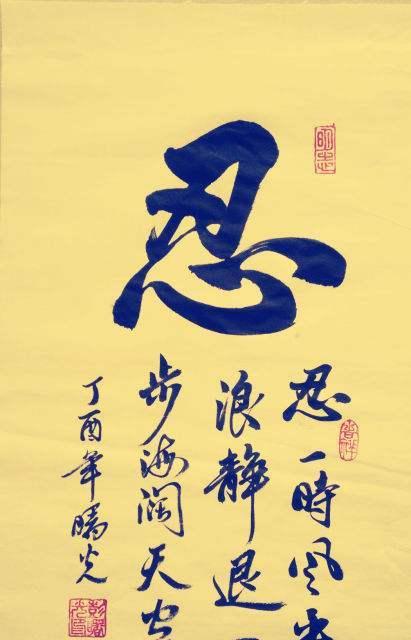 忍
忍一時风平
浪靜退一
步海闊天空
丁酉年曉光